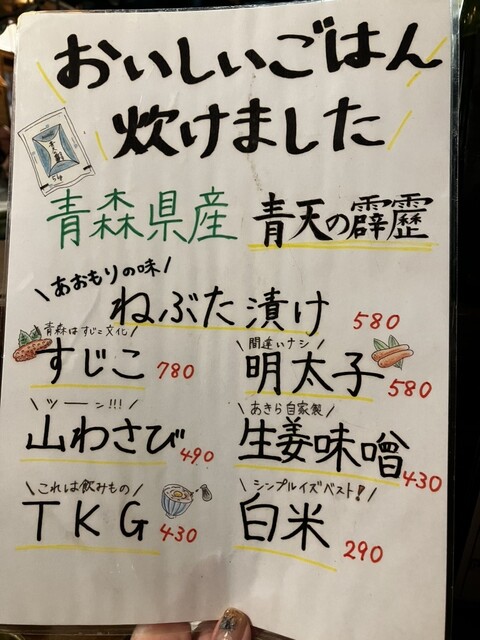 おいしいごはん
炊けました
青天の霹靂
青森県産 青天の霹靂
\あおもりの味/
ねぶた漬け 580
青森はすじこ文化/
すじこ 780
間違いナシ/
明太子 580
\ツーーン!!!/
山わさび 490
\あきら自家製/
生姜味噌 430
\これは飲みもの/
TKG 430
\シンプルイズベスト!/
白米 290